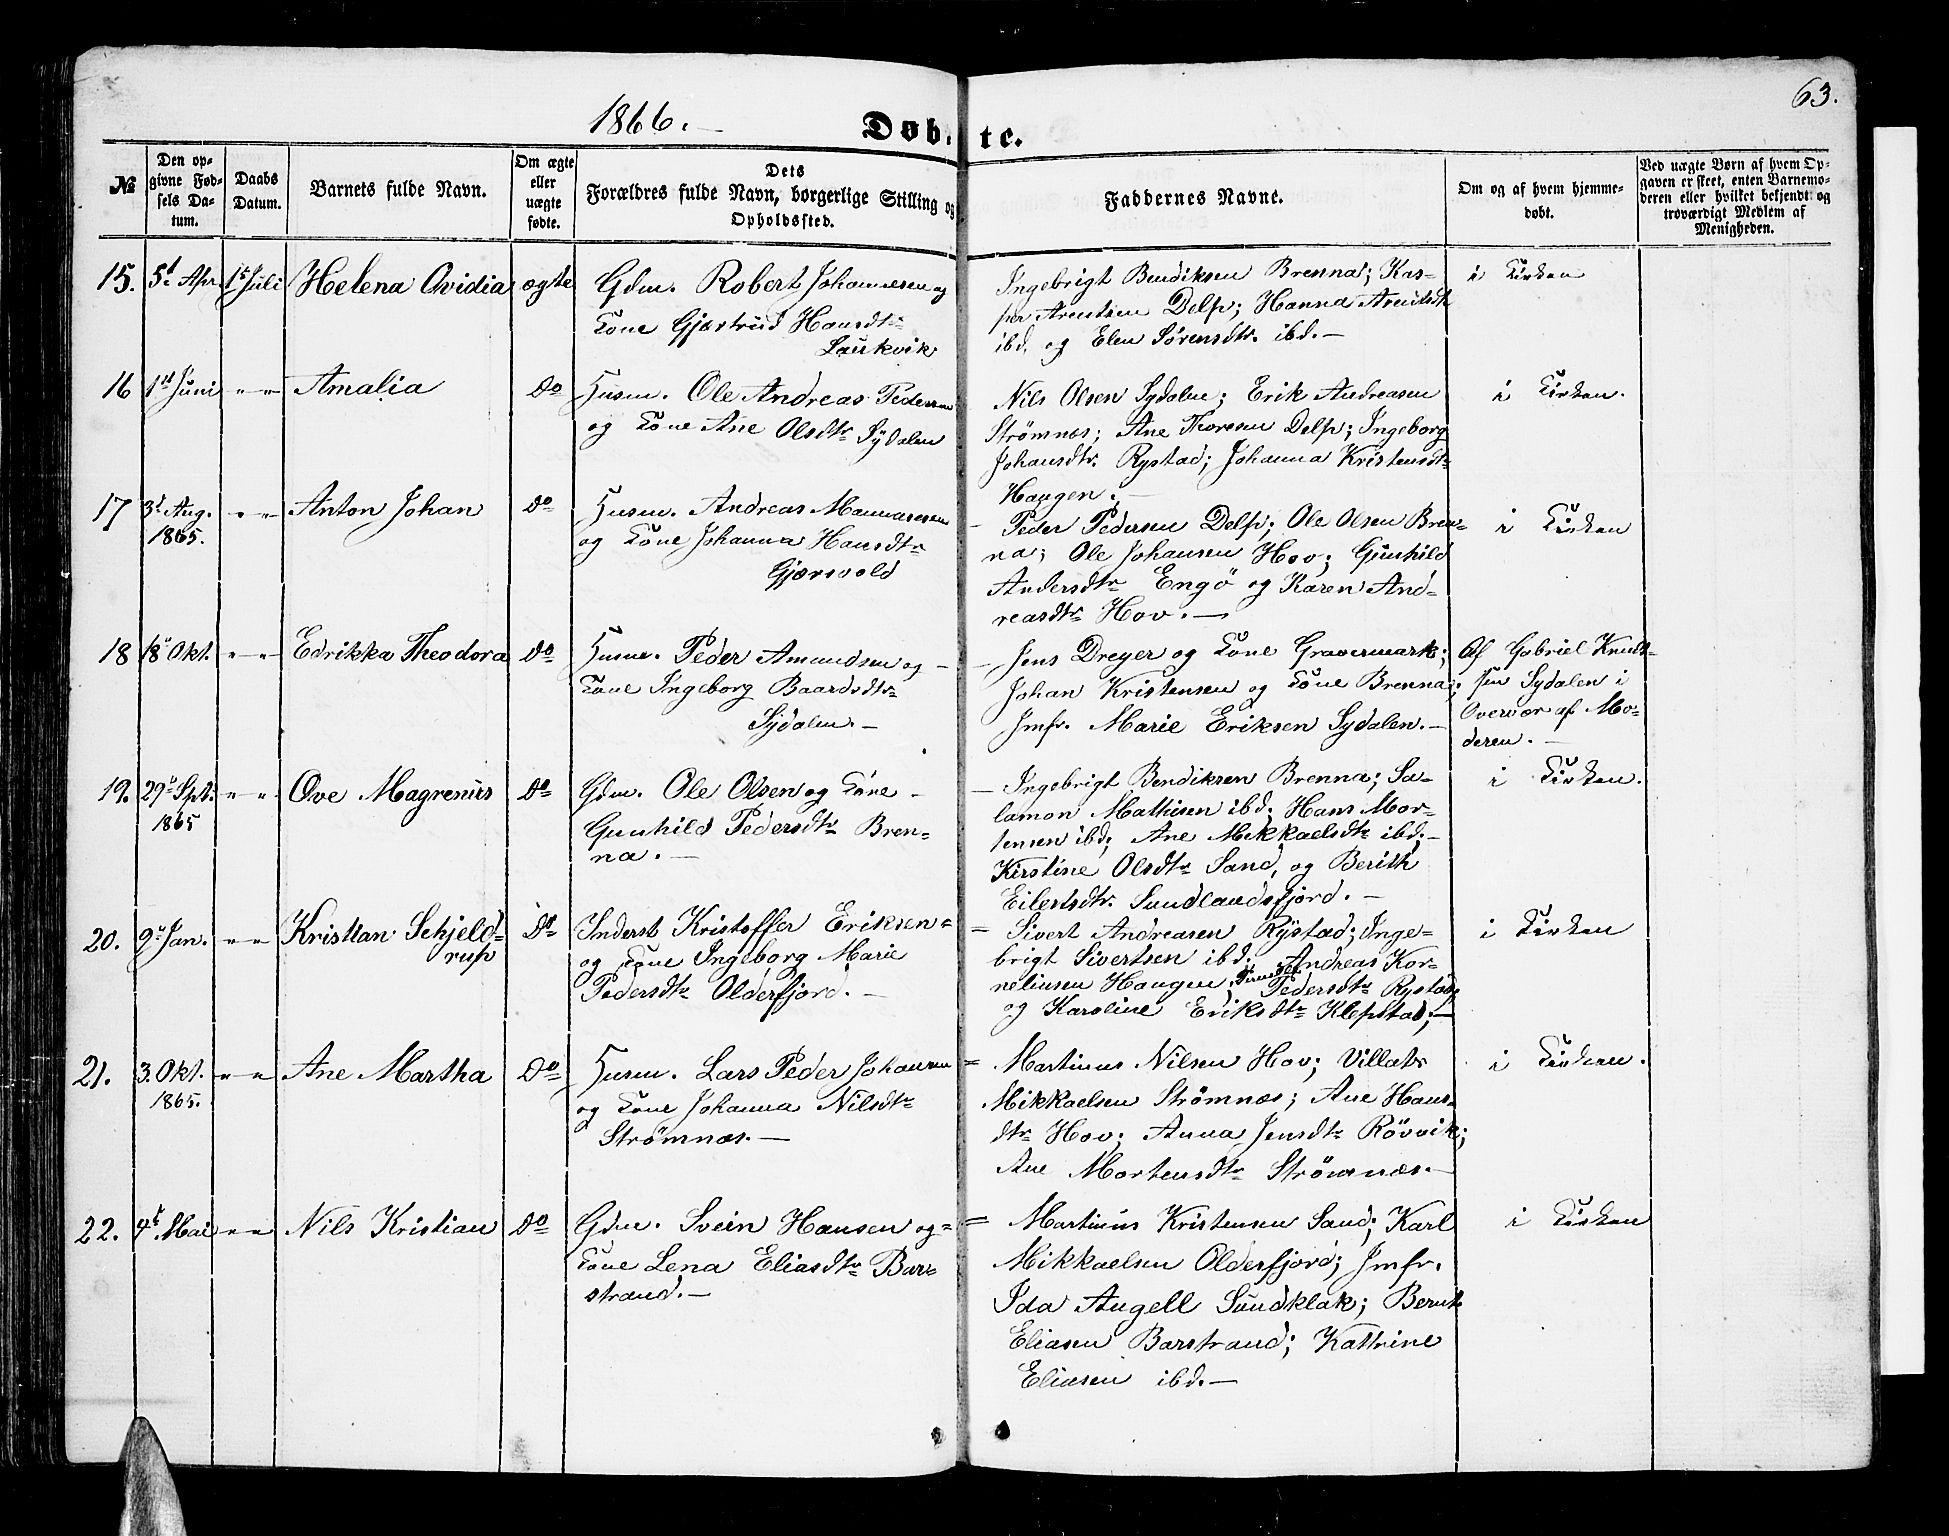 63.
1866.
Døbte.
№
Den opgivne Fødsels Datum.
Daabs Datum.
Barnets fulde Navn.
Om ægte eller uægte fødte.
Dets Forældres fulde Navn, borgerlige Stilling og Opholdssted.
Faddernes Navne.
Om og af hvem hjemmedøbt.
Ved uægte Børn af hvem Opgaven er skeet, enten Barnemoderen eller hvilket bekjendt og troværdigt Medlem af Menigheden.
15. 5t Apr 1st Juli Helena Ovidia ægte Gdm. Robert Johannesen og
Kone Gjertrud Hansdtr
Laukvik
Ingebrigt Bendiksen Brenna; Kas-
per Arentsen Delp; Hanna Arentsdt
ibd. og Elen Sørensdtr. ibd. —
i Kirken
16 1st Juni " " Amalia do Husm. Ole Andreas Pedersen
og Kone Ane Olsdtr Sydalen
Nils Olsen Sydalen; Erik Andreasen
Strømnæs; Ane Thoresen Delp; Ingeborg
Johansdtr. Rystad; Johanna Kristensdt
Haugen. —
i Kirken.
17 3d Aug. " " Anton Johan do Husm. Andreas Mannasesen
1865.
og Kone Johanna Hansdtr
Gjærvold
Peder Pedersen Delp; Ole Olsen Bren-
na; Ole Johansen Hov; Gunhild
Andersdtr Engö og Karen And-
reasdtr Hov. —
i Kirken
18 18 Okt. " " Edrikka Theodora do Husm. Peder Amundsen og
Kone Ingeborg Baardsdtr
Sydalen. —
Jens Dreyer og Kone Gravermark;
Johan Kristensen og Kone Brenna;
Jmfr. Marie Eriksen Sydalen. —
Af Gabriel Knudt-
sen Sydalen i
Overvær af Mo-
deren. —
19. 29 Spt. " " Ove Magrenius do Gdm. Ole Olsen og Kone
1865
Gunhild Pedersdtr Bren-
na. —
Ingebrigt Bendiksen Brenna; Sa-
lamon Mathisen ibd; Hans Mor-
tensen ibd; Ane Mikkaelsdtr ibd; —
Kirstine Olsdtr Sand, og Berith
Eilertsdtr. Sundlandsfjord. —
i Kirken.
20. 9 Jan. " " Kristian Schjeld-
rup
do Inderst Kristoffer Eriksen
og Kone Ingeborg Marie
Pedersdtr Olderfjord. —
Sivert Andreasen Rystad; Inge-
brigt Sivertsen ibd; Andreas Kor-
neliusen Haugen; Pedersdtr Rystad
og Karoline Eriksdtr Klepstad; —
i Kirken
21. 3. Okt. " " Ane Martha do Husm. Lars Peder Johansen
1865.
og Kone Johanna Nilsdtr
Strömnæs. —
Martinus Nilsen Hov; Villats
Mikkaelsen Strömnæs; Ane Hans-
dtr Hov; Anna Jensdtr Rövvik;
Ane Mortensdtr Strömnæs. —
i Kirken.
22. 4t Mai " " Nils Kristian do Gdm. Svein Hansen og
Kone Lena Eliasdtr Bar-
strand. —
Martinus Kristensen Sand; Karl
Mikkaelsen Olderfjord; Jmfr.
Ida Angell Sundklak; Bernt
Eliasen Barstrand; Kattrine
Eliasen ibd. —
i Kirken